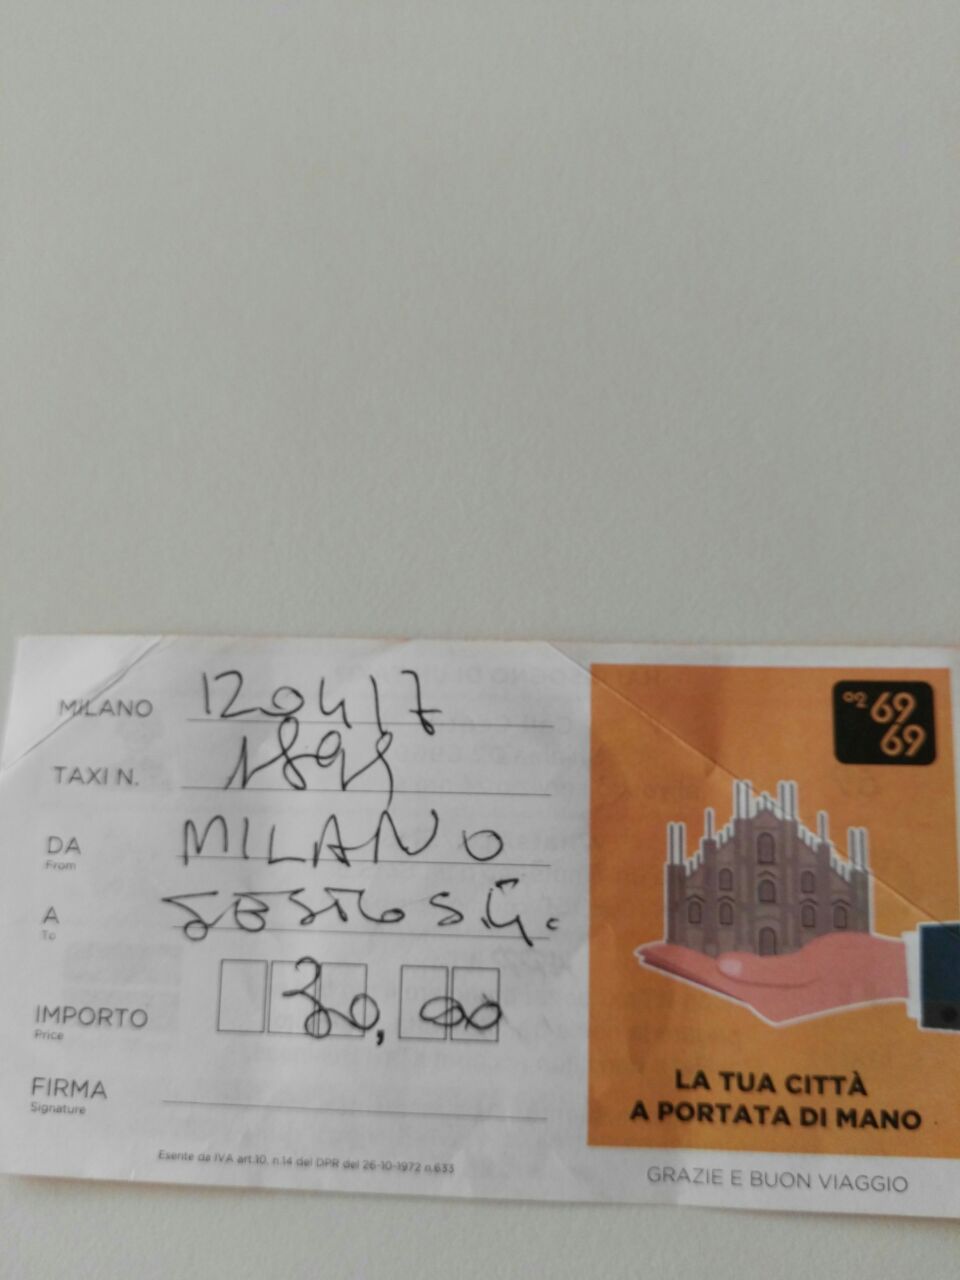 MILANO 120417
TAXI N. 1898
DA MILANO
From
A SESTO S.G.
To
IMPORTO 30,00
Price
FIRMA
Signature
Esente da IVA art.10, n.14 del DPR del 26-10-1972 n.633
02 69
69
LA TUA CITTÀ
A PORTATA DI MANO
GRAZIE E BUON VIAGGIO